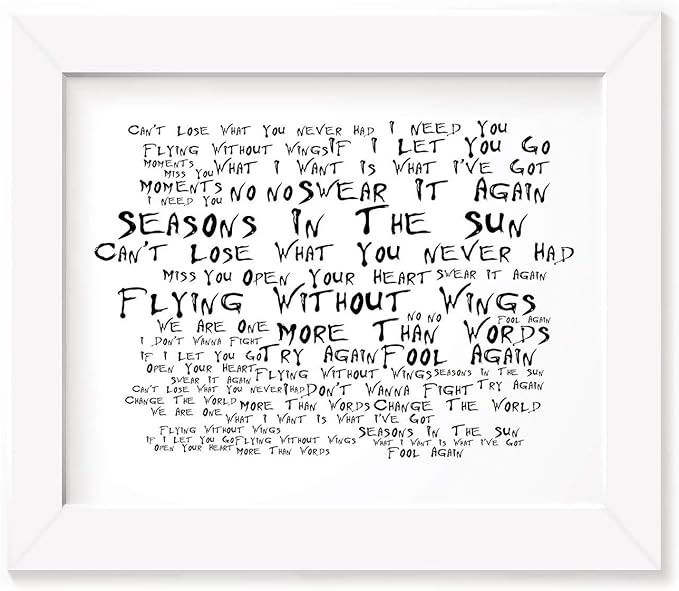 Can't Lose What You Never Had I Need You
Flying Without Wings If I Let You Go
Moments
Miss You What I Want Is What I've Got
Moments No No Swear It Again
I Need You
Seasons In The Sun
Can't Lose What You Never Had
Miss You Open Your Heart Swear It Again
Flying Without Wings
No No Fool Again
We Are One More Than Words
I Don't Wanna Fight
If I Let You Go Try Again Fool Again
Open Your Heart Flying Without Wings Seasons In The Sun
Swear It Again
Can't Lose What You Never Had I Don't Wanna Fight Try Again
Change The World More Than Words Change The World
We Are One
What I Want Is What I've Got
Flying Without Wings Seasons In The Sun
If I Let You Go Flying Without Wings What I Want Is What I've Got
Open Your Heart More Than Words Fool Again